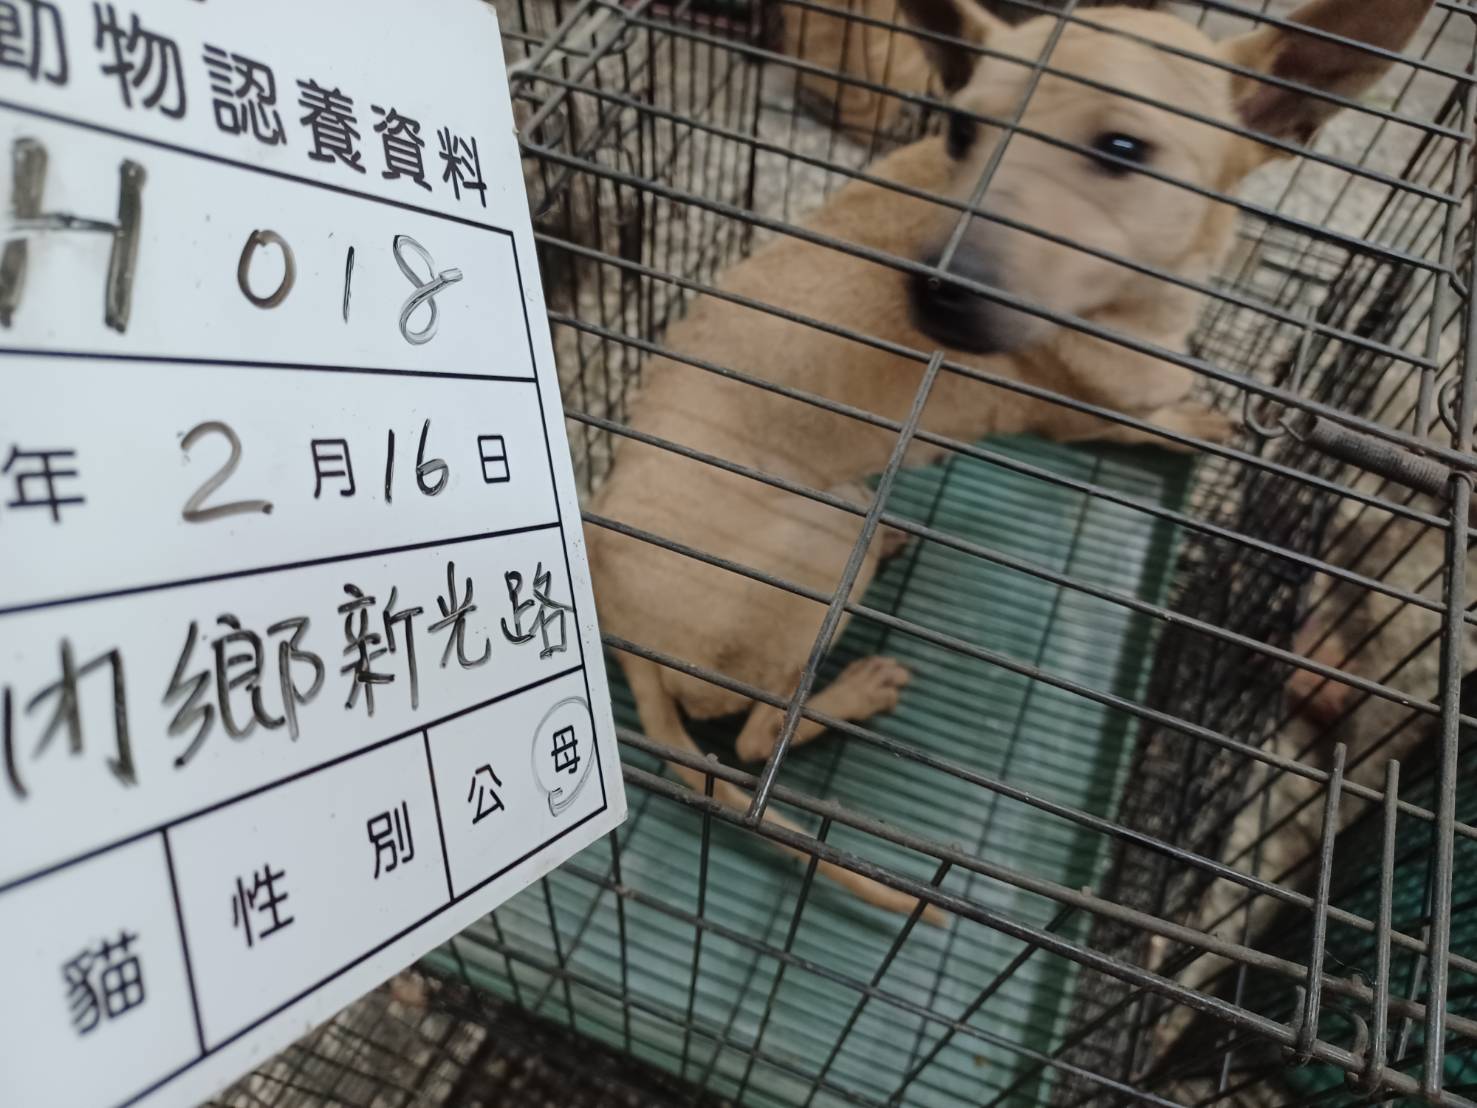 動物認養資料
H018
年 2 月 16 日
內鄉新光路
貓 性別 公 母